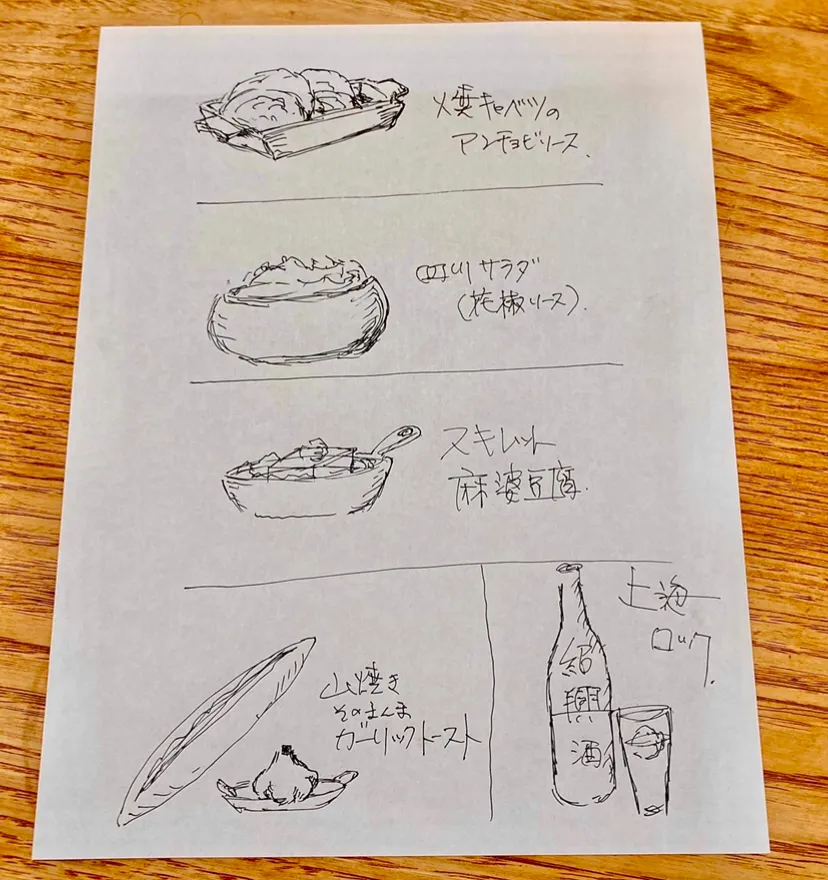 焼キャベツの
アンチョビソース、
四川サラダ
(花椒ソース).
スキレット
麻婆豆腐.
焼き
そのまんま
ガーリックトースト
上海
ロック.
紹
興
酒